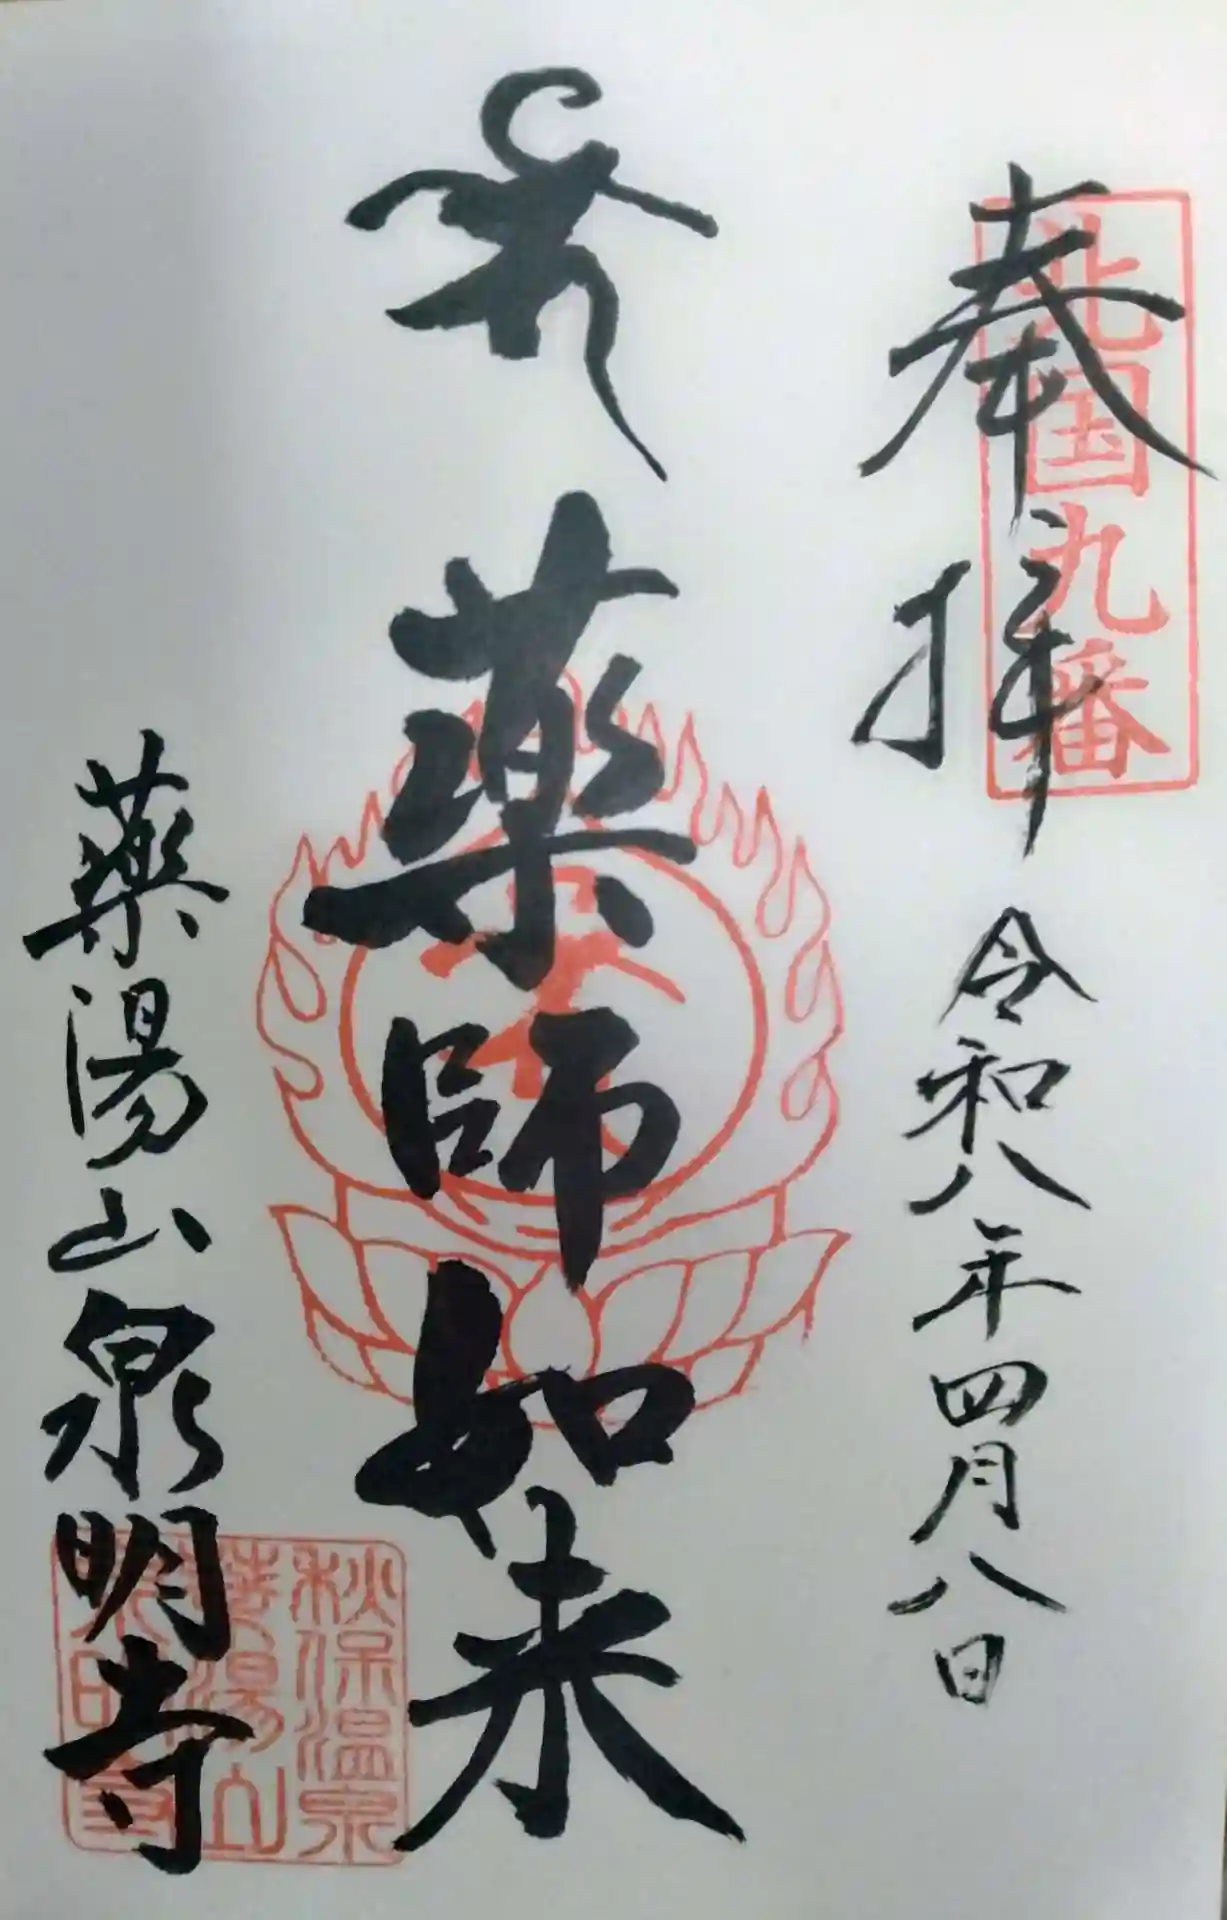 奉拝
北国九番
令和八年四月八日
薬師如来
薬湯山泉明寺
秋保温泉
薬湯山
泉明寺